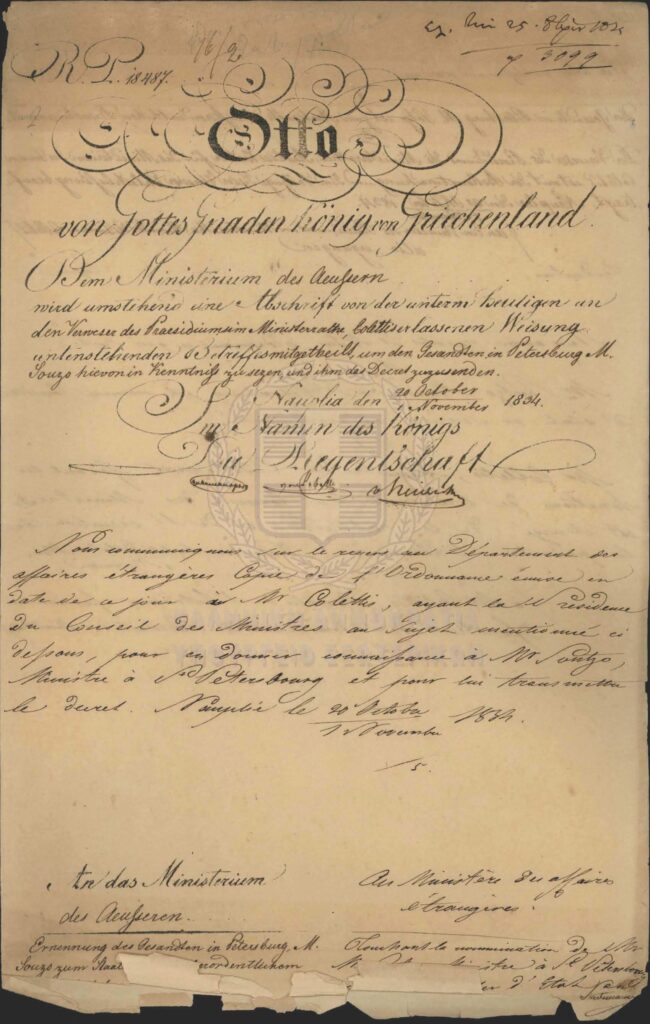 R. P. 18487.
16/2
25. 1834
3099
Otto
von Gottes Gnaden König von Griechenland.
Dem Ministerium des Aeussern
wird umstehend eine Abschrift von der unterm heutigen an
den Verweser des Praesidiums im Ministerrathe, Colettis erlassenen Weisung
untenstehenden Betreffs mitgetheilt, um den Gesandten in Petersburg M.
Souzo hievon in Kenntniß zu sezen, und ihm das Decret zuzusenden.
Nauplia den 20 October / 1 November 1834.
Im Namen des Königs
Die Regentschaft
Nous communiquons sur le revers au Département des
affaires étrangères Copie de l'Ordonnance émise en
date de ce jour à Mr Colettis, ayant la Présidence
du Conseil des Ministres au Sujet mentionné ci
dessous, pour en donner connaissance à Mr Soutzo,
Ministre à St Petersbourg et pour lui transmettre
le decret. Nauplie le 20 Octobre / 1 Novembre 1834.
An das Ministerium
des Aeusseren.
Au Ministère des affaires
étrangères.
Ernennung des Gesandten in Petersburg, M.
Souzo zum
Touchant la nomination de Mr
à St Petersbourg
d'Etat